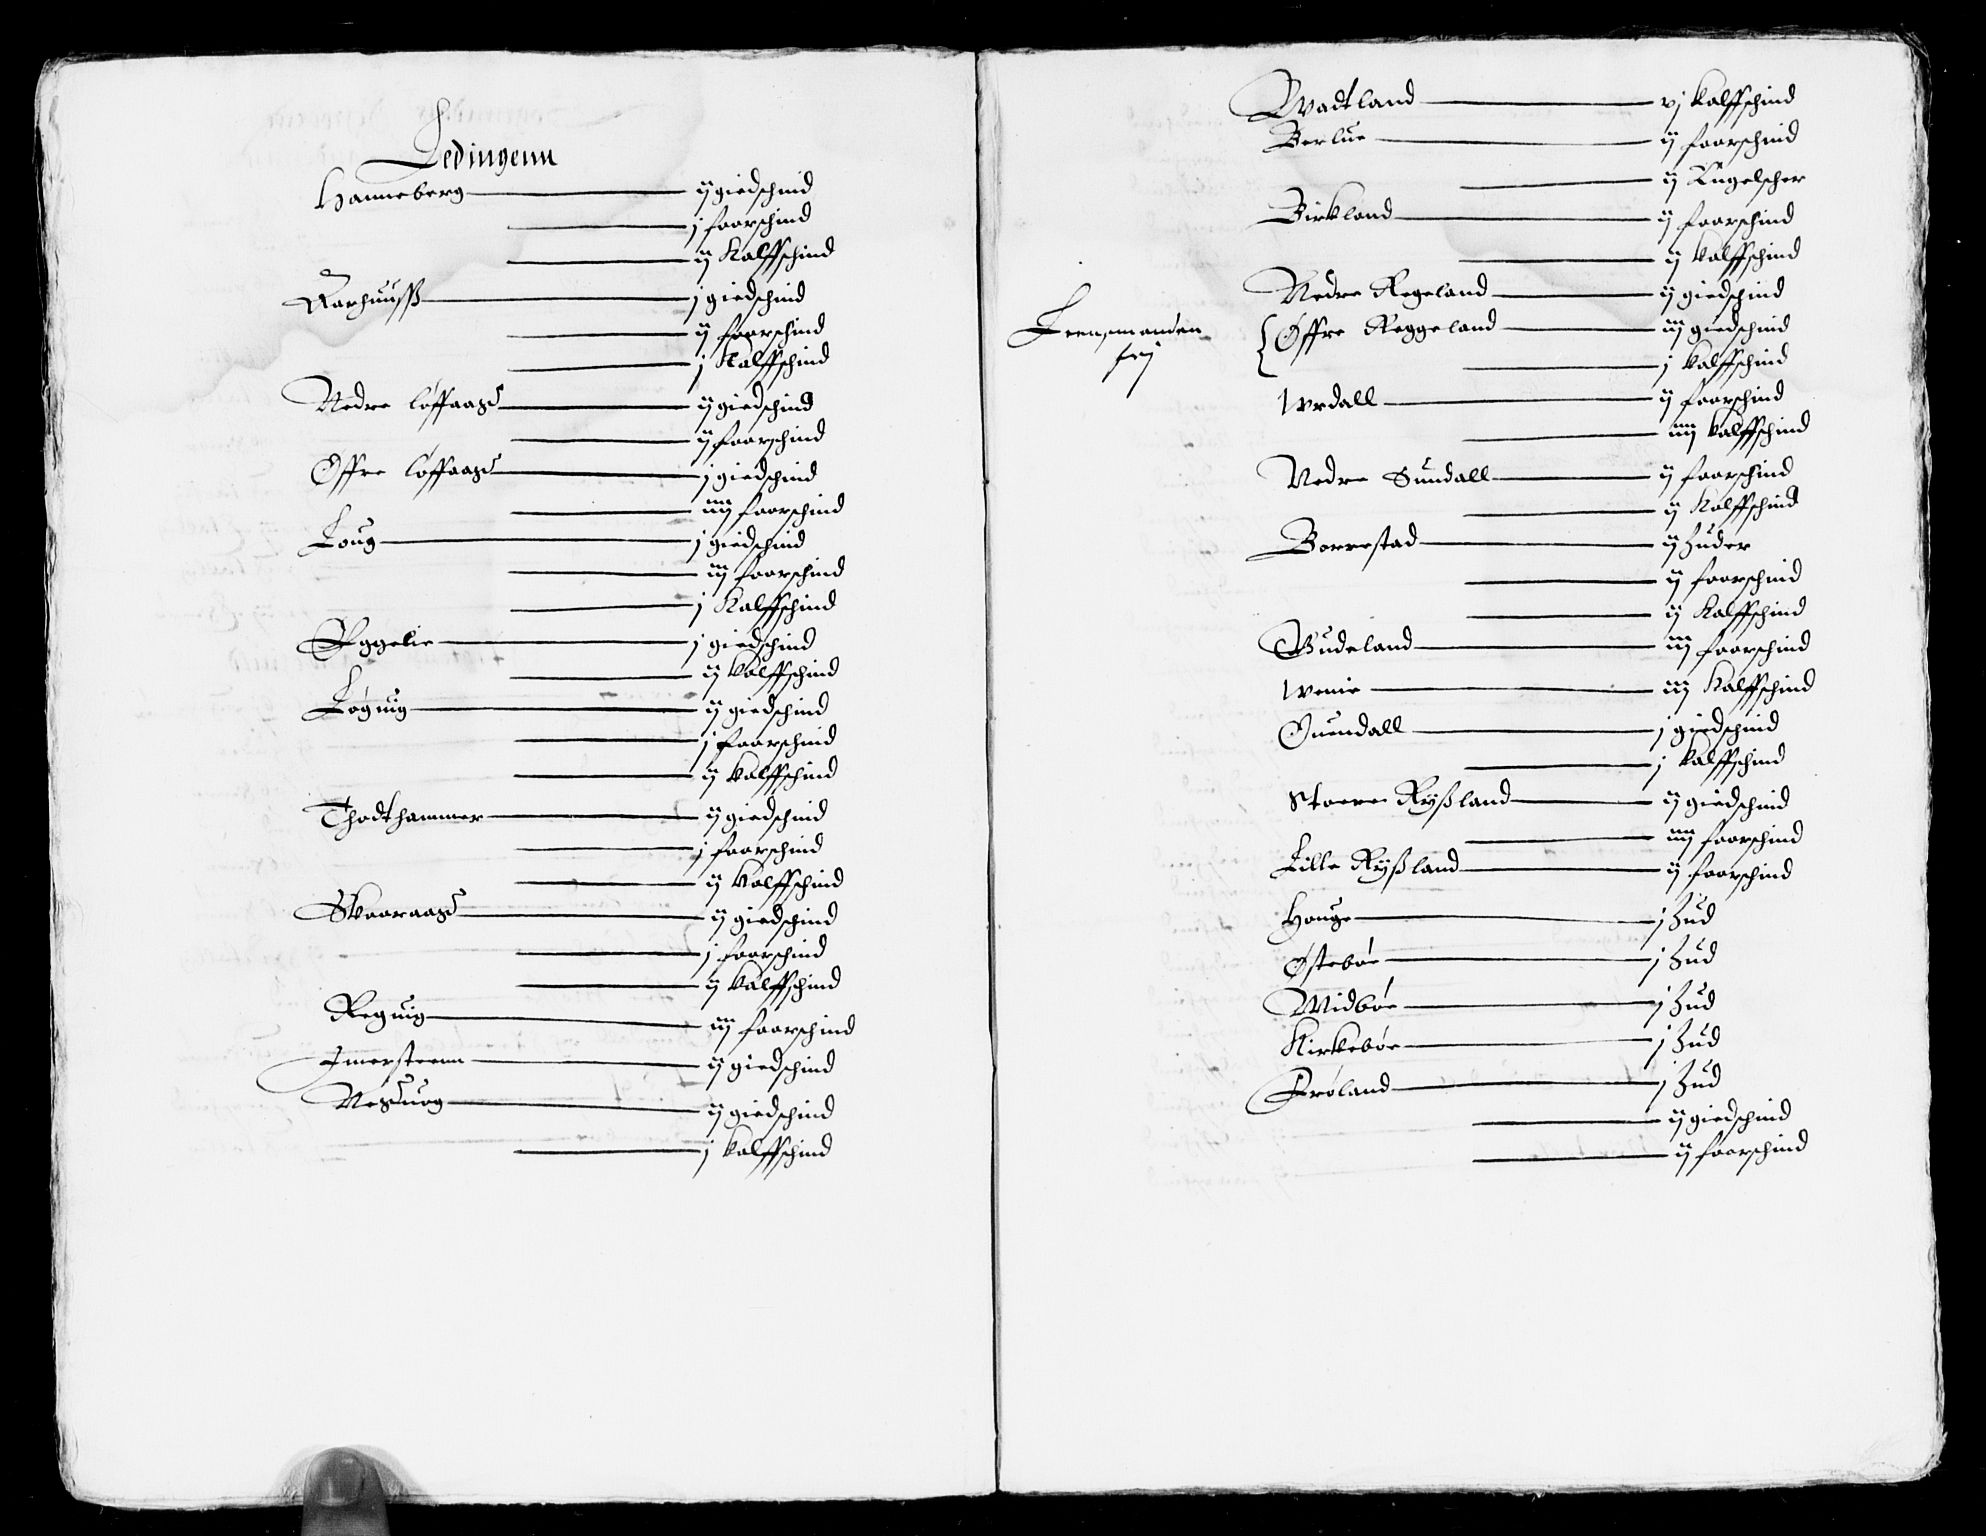 Ledingenn
Hanneberg — ij giedschind
— j faarschind
— ij Kalffschind
Aarhuuss — j giedschind
— ij faarschind
— j Kalffschind
Nedre løffaass — ij giedschind
— ij faarschind
Øffre løffaass — j giedschind
— iiij faarschind
Loug — j giedschind
— iij faarschind
— j Kalffschind
Eggelie — j giedschind
— ij kalffschind
Løguig — ij giedschind
— j faarschind
— ij kalffschind
Thodthammer — ij giedschind
— j faarschind
— ij kalffschind
Skaaraass — ij giedschind
— j faarschind
— ij kalffschind
Reguig — iij faarschind
Imersteenn — ij giedschind
Nessuog — ij giedschind
— j kalffschind
Wadtland — vj kalffschind
Berlue — ij faarschind
— ij Kugelscher
Birkland — ij faarschind
— ij kalffschind
Nedre Regeland — ij giedschind
Leensmanden
frij
{ Øffre Reggeland — iij giedschind
— j kalffschind
Wrdall — ij faarschind
— iiij kalffschind
Nedre Sundall — ij faarschind
— ij Kalffschind
Borrestad — ij Huder
— ij faarschind
— ij Kalffschind
Gudeland — iij faarschind
Wenie — iij Kalffschind
Quendall — j giedschind
— j kalffschind
Stoere Rysland — ij giedschind
— iiij faarschind
Lille Rysland — ij faarschind
Houge — j Hud
Østebøe — j Hud
Midbøe — j Hud
Kirkebøe — j Hud
Frøland — j Hud
— ij giedschind
— ij faarschind